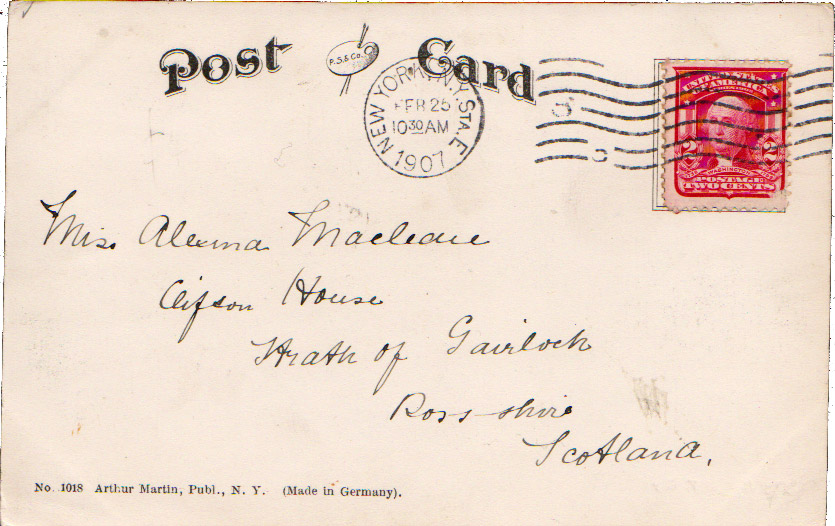 Post Card
P.S.& Co.
NEW YORK, N.Y. STA. E
FEB 25
10 30 AM
1907
UNITED STATES
OF AMERICA
2 2
WASHINGTON
POSTAGE
TWO CENTS
Miss Alexina Maclean
Clifton House
Strath of Gairloch
Ross-shire
Scotland.
No. 1018 Arthur Martin, Publ., N. Y. (Made in Germany).